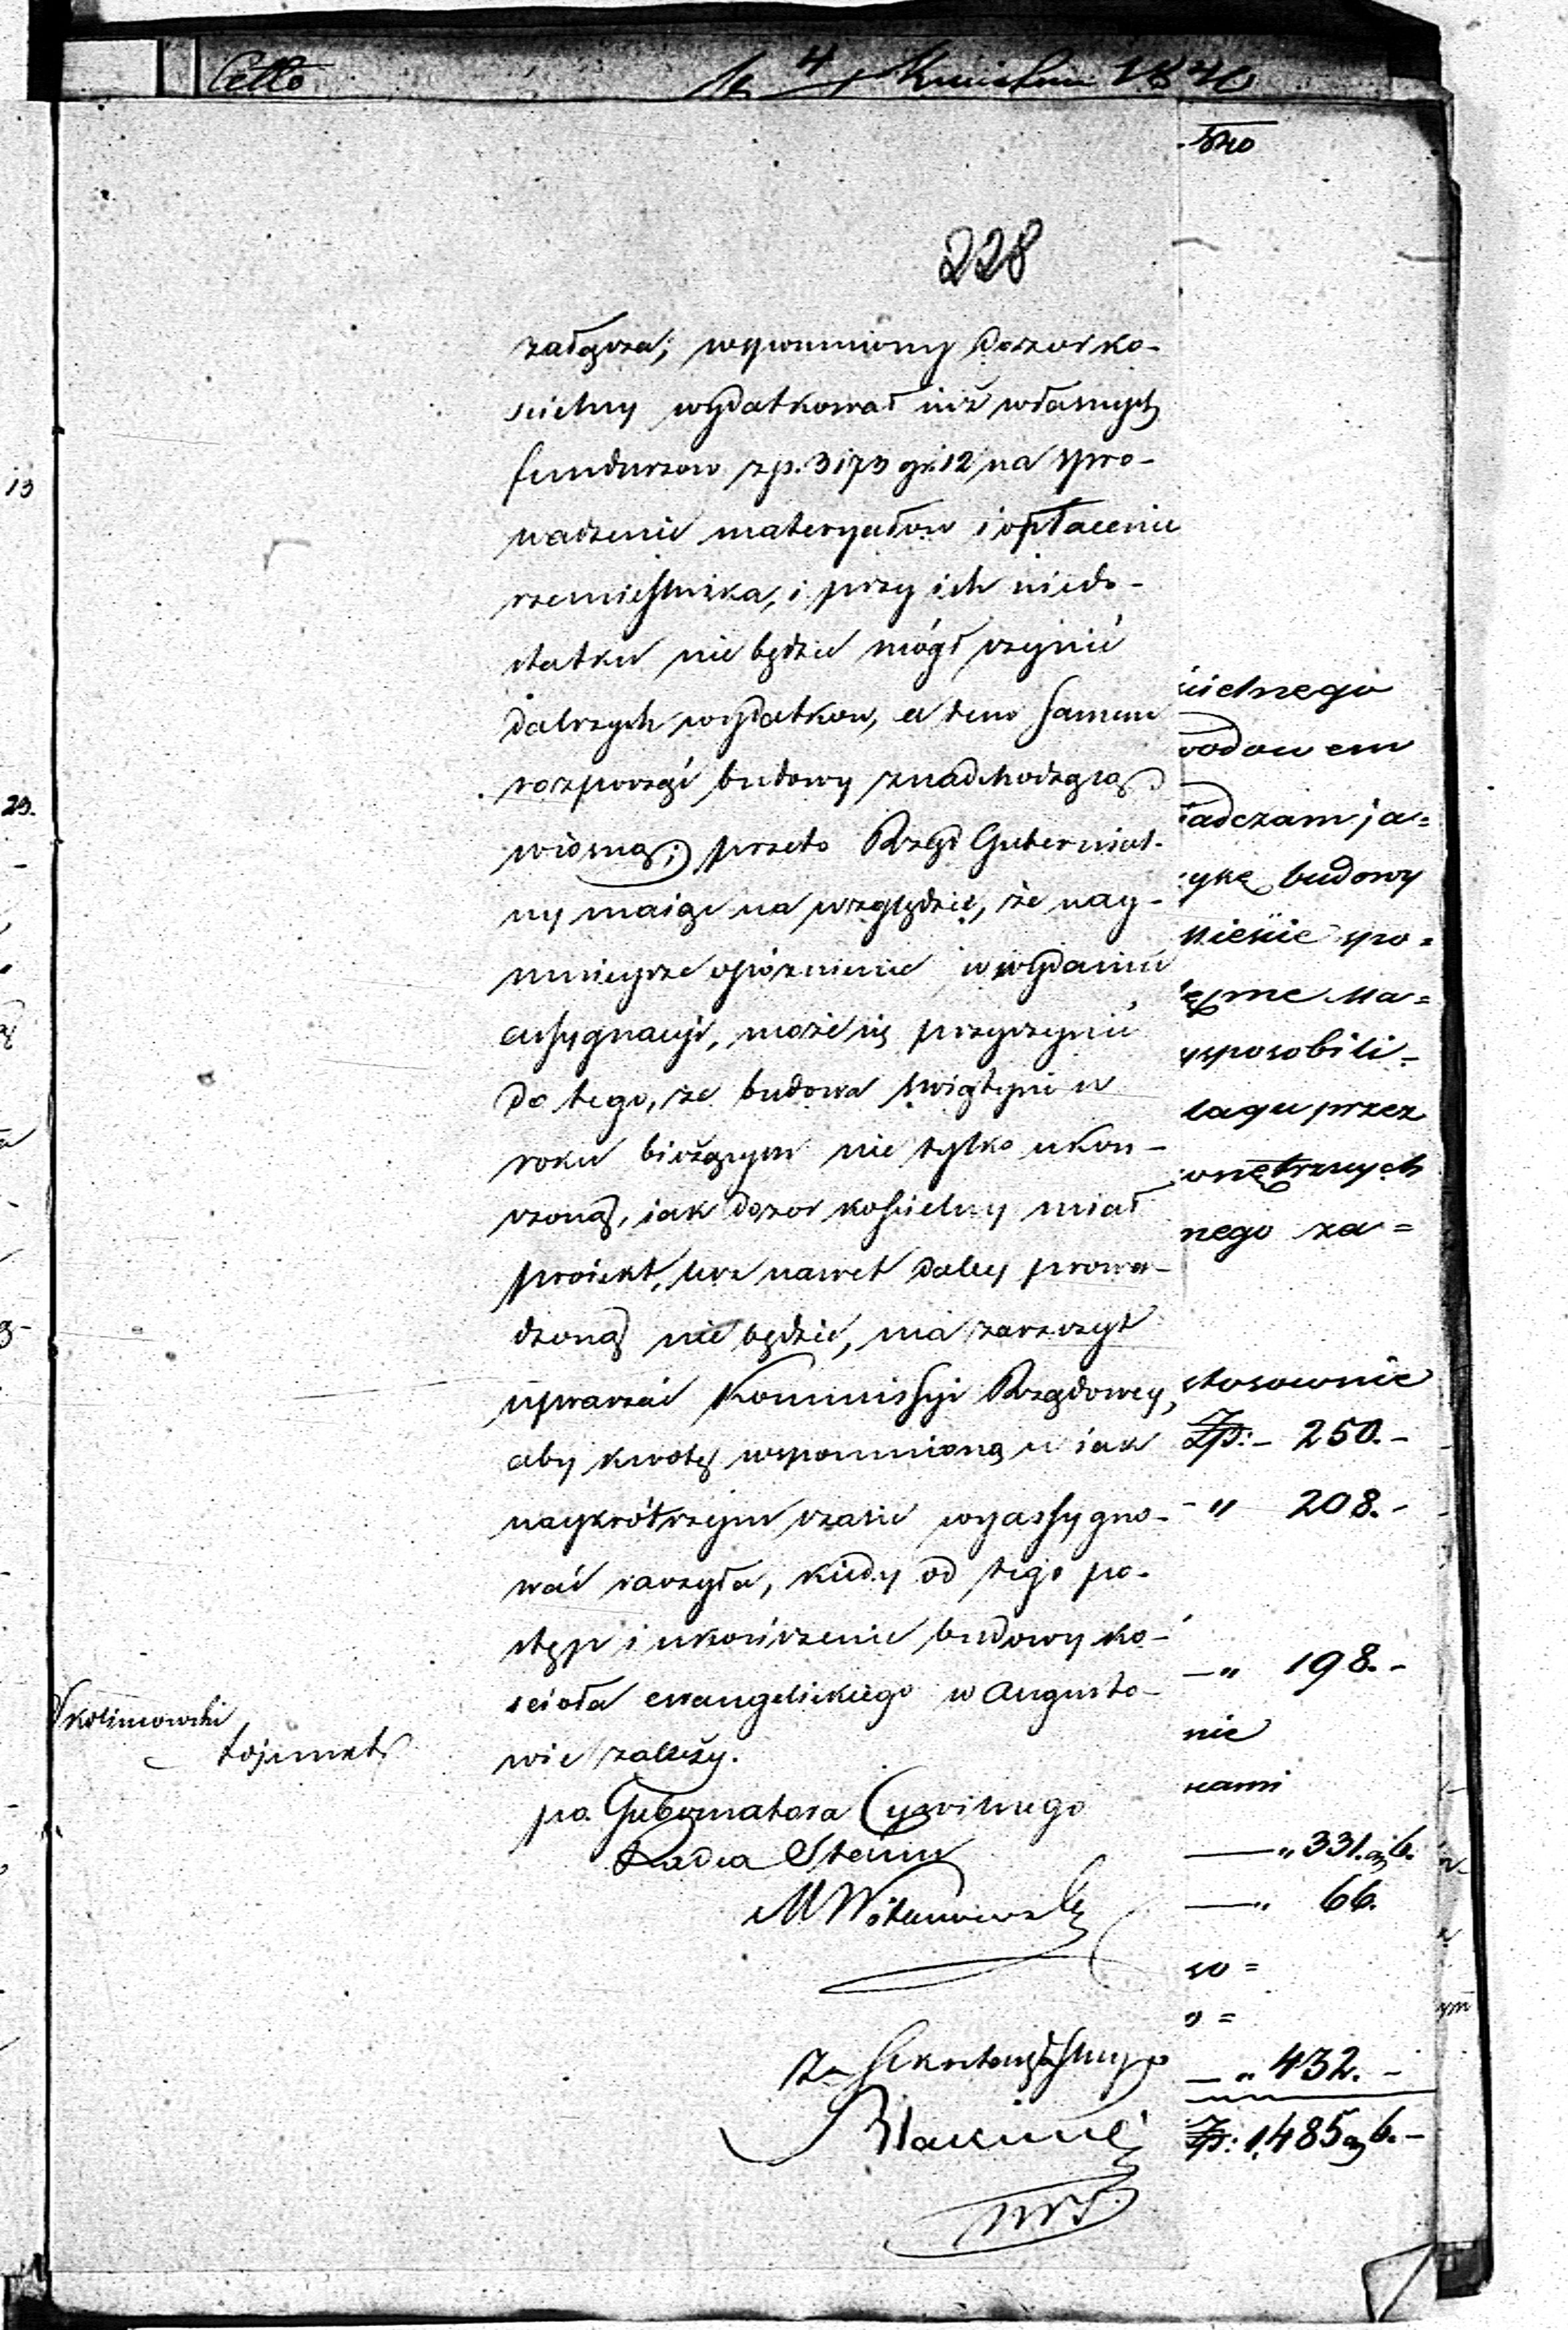 228
załącza, wspomniony Dozor ko-
scielny wydatkował iuż własnych
funduszow zp. 3173 gr. 12 na spro-
wadzenie materyałow i opłacenie
rzemieslnika, i przy ich niedo-
statku nie będzie mógł czynić
dalszych wydatkow, a tem samem
rozpocząć budowy z nadchodzącą
wiosną; przeto Rząd Gubernial-
ny maiąc na względzie, że nay-
mnieysze opóznienie w wydaniu
assygnacyi, może się przyczynić
do tego, że budowa swiątyni w
roku bieżącym nie tylko ukon-
czoną, iak dozor koscielny miał
proiekt, lecz nawet daley prowa-
dzoną nie będzie, ma zaszczyt
upraszać Kommissyi Rządowey,
aby kwotę wspomnioną w iak
naykrótszym czasie wyassygno-
wać raczyła, kiedy od tego po-
stęp i ukończenie budowy ko-
scioła ewangelickiego w Augusto-
wie zależy.
po. Gubernatora Cywilnego
Radca Stanu
Za Sekretarza
Skolimowski
szo
cielnego
wodowem
iadczam ja=
budowy
spo=
Ma=
usposobili=
lagu przez
wnętrznych
nego za=
stosownie
Zp: - 250. -
- " 208. -
- " 198. -
nie
kami
- " 331. g 6.
- " 66.
so =
o =
- " 432. -
Zp: 1,485 g 6. -
ym
13
29.